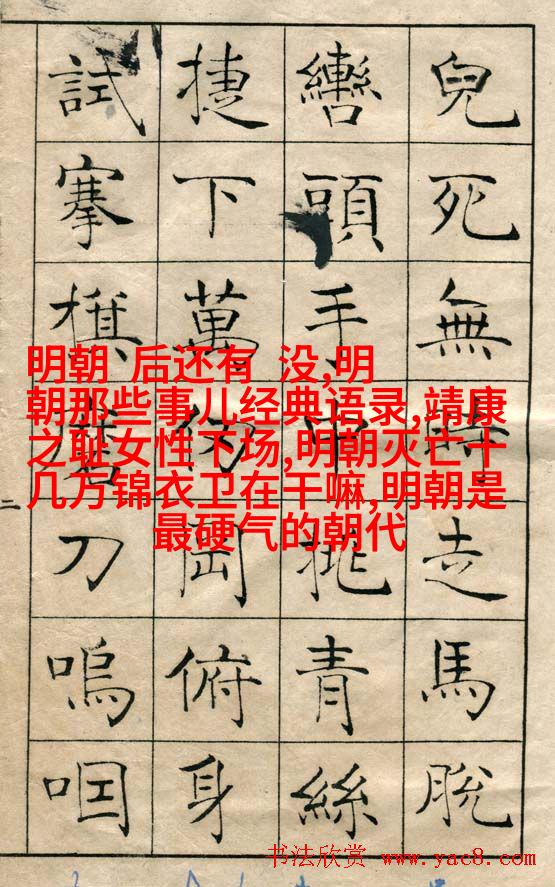 兒死無時走馬脫
轡頭手中挑青絲
捷下萬仞岡俯身
試搴旗磨刀嗚咽
二
明朝 后还有 没,明
朝那些事儿经典语录,靖康
之耻女性下场,明朝灭亡十
几万锦衣卫在干嘛,明朝是
最硬气的朝代
书法欣赏 www.yac8.com